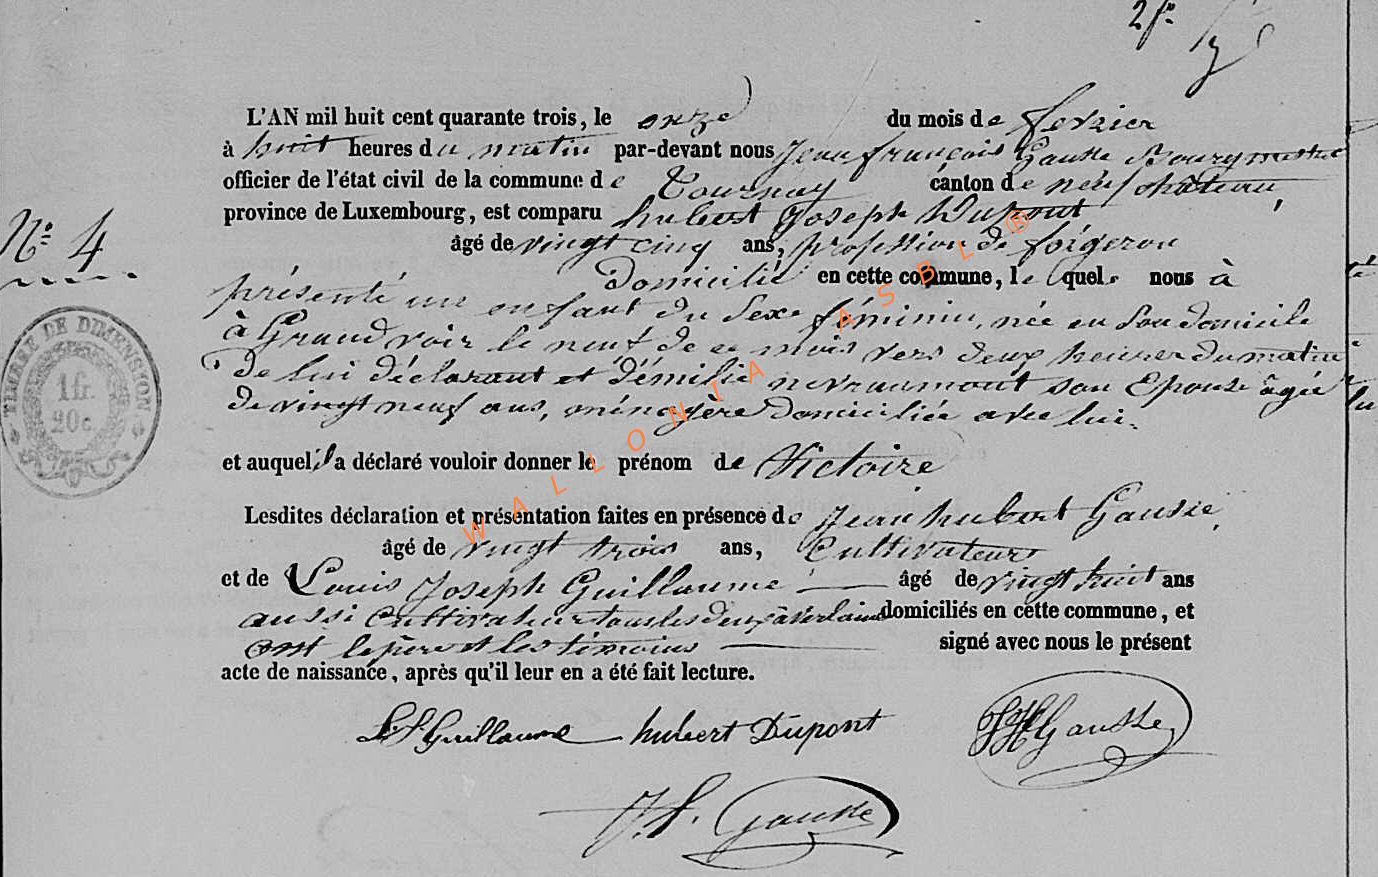 2 fo
L'AN mil huit cent quarante trois, le onze du mois de fevrier
à huit heures du matin par-devant nous Jean françois Gausse Bourgmestre
officier de l'état civil de la commune de Tournay canton de neufchâteau,
province de Luxembourg, est comparu hubert Joseph Dupont
No. 4
âgé de vingt cinq ans, profession de forgeron
Domicilié en cette commune, le quel nous à
présenté un enfant du Sexe féminin, née en Son domicile
à Grandvoir le neuf de ce mois vers deux heures du matin
De lui déclarant et d'émilie nevraumont son Epouse âgée
de vingt neuf ans, ménagère domiciliée avec lui.
TIMBRE DE DIMENSION
1 fr.
20 c.
et auquel il a déclaré vouloir donner le prénom de Victoire
Lesdites déclaration et présentation faites en présence de Jean hubert Gausse,
âgé de vingt trois ans, Cultivateur
et de Louis Joseph Guillaume âgé de vingt huit ans
aussi Cultivateur tous les deux à domiciliés en cette commune, et
ont le père et les témoins signé avec nous le présent
acte de naissance, après qu'il leur en a été fait lecture.
LJ Guillaume hubert Dupont JH Gausse
J. f. Gausse
WALLONIA ASBL ®